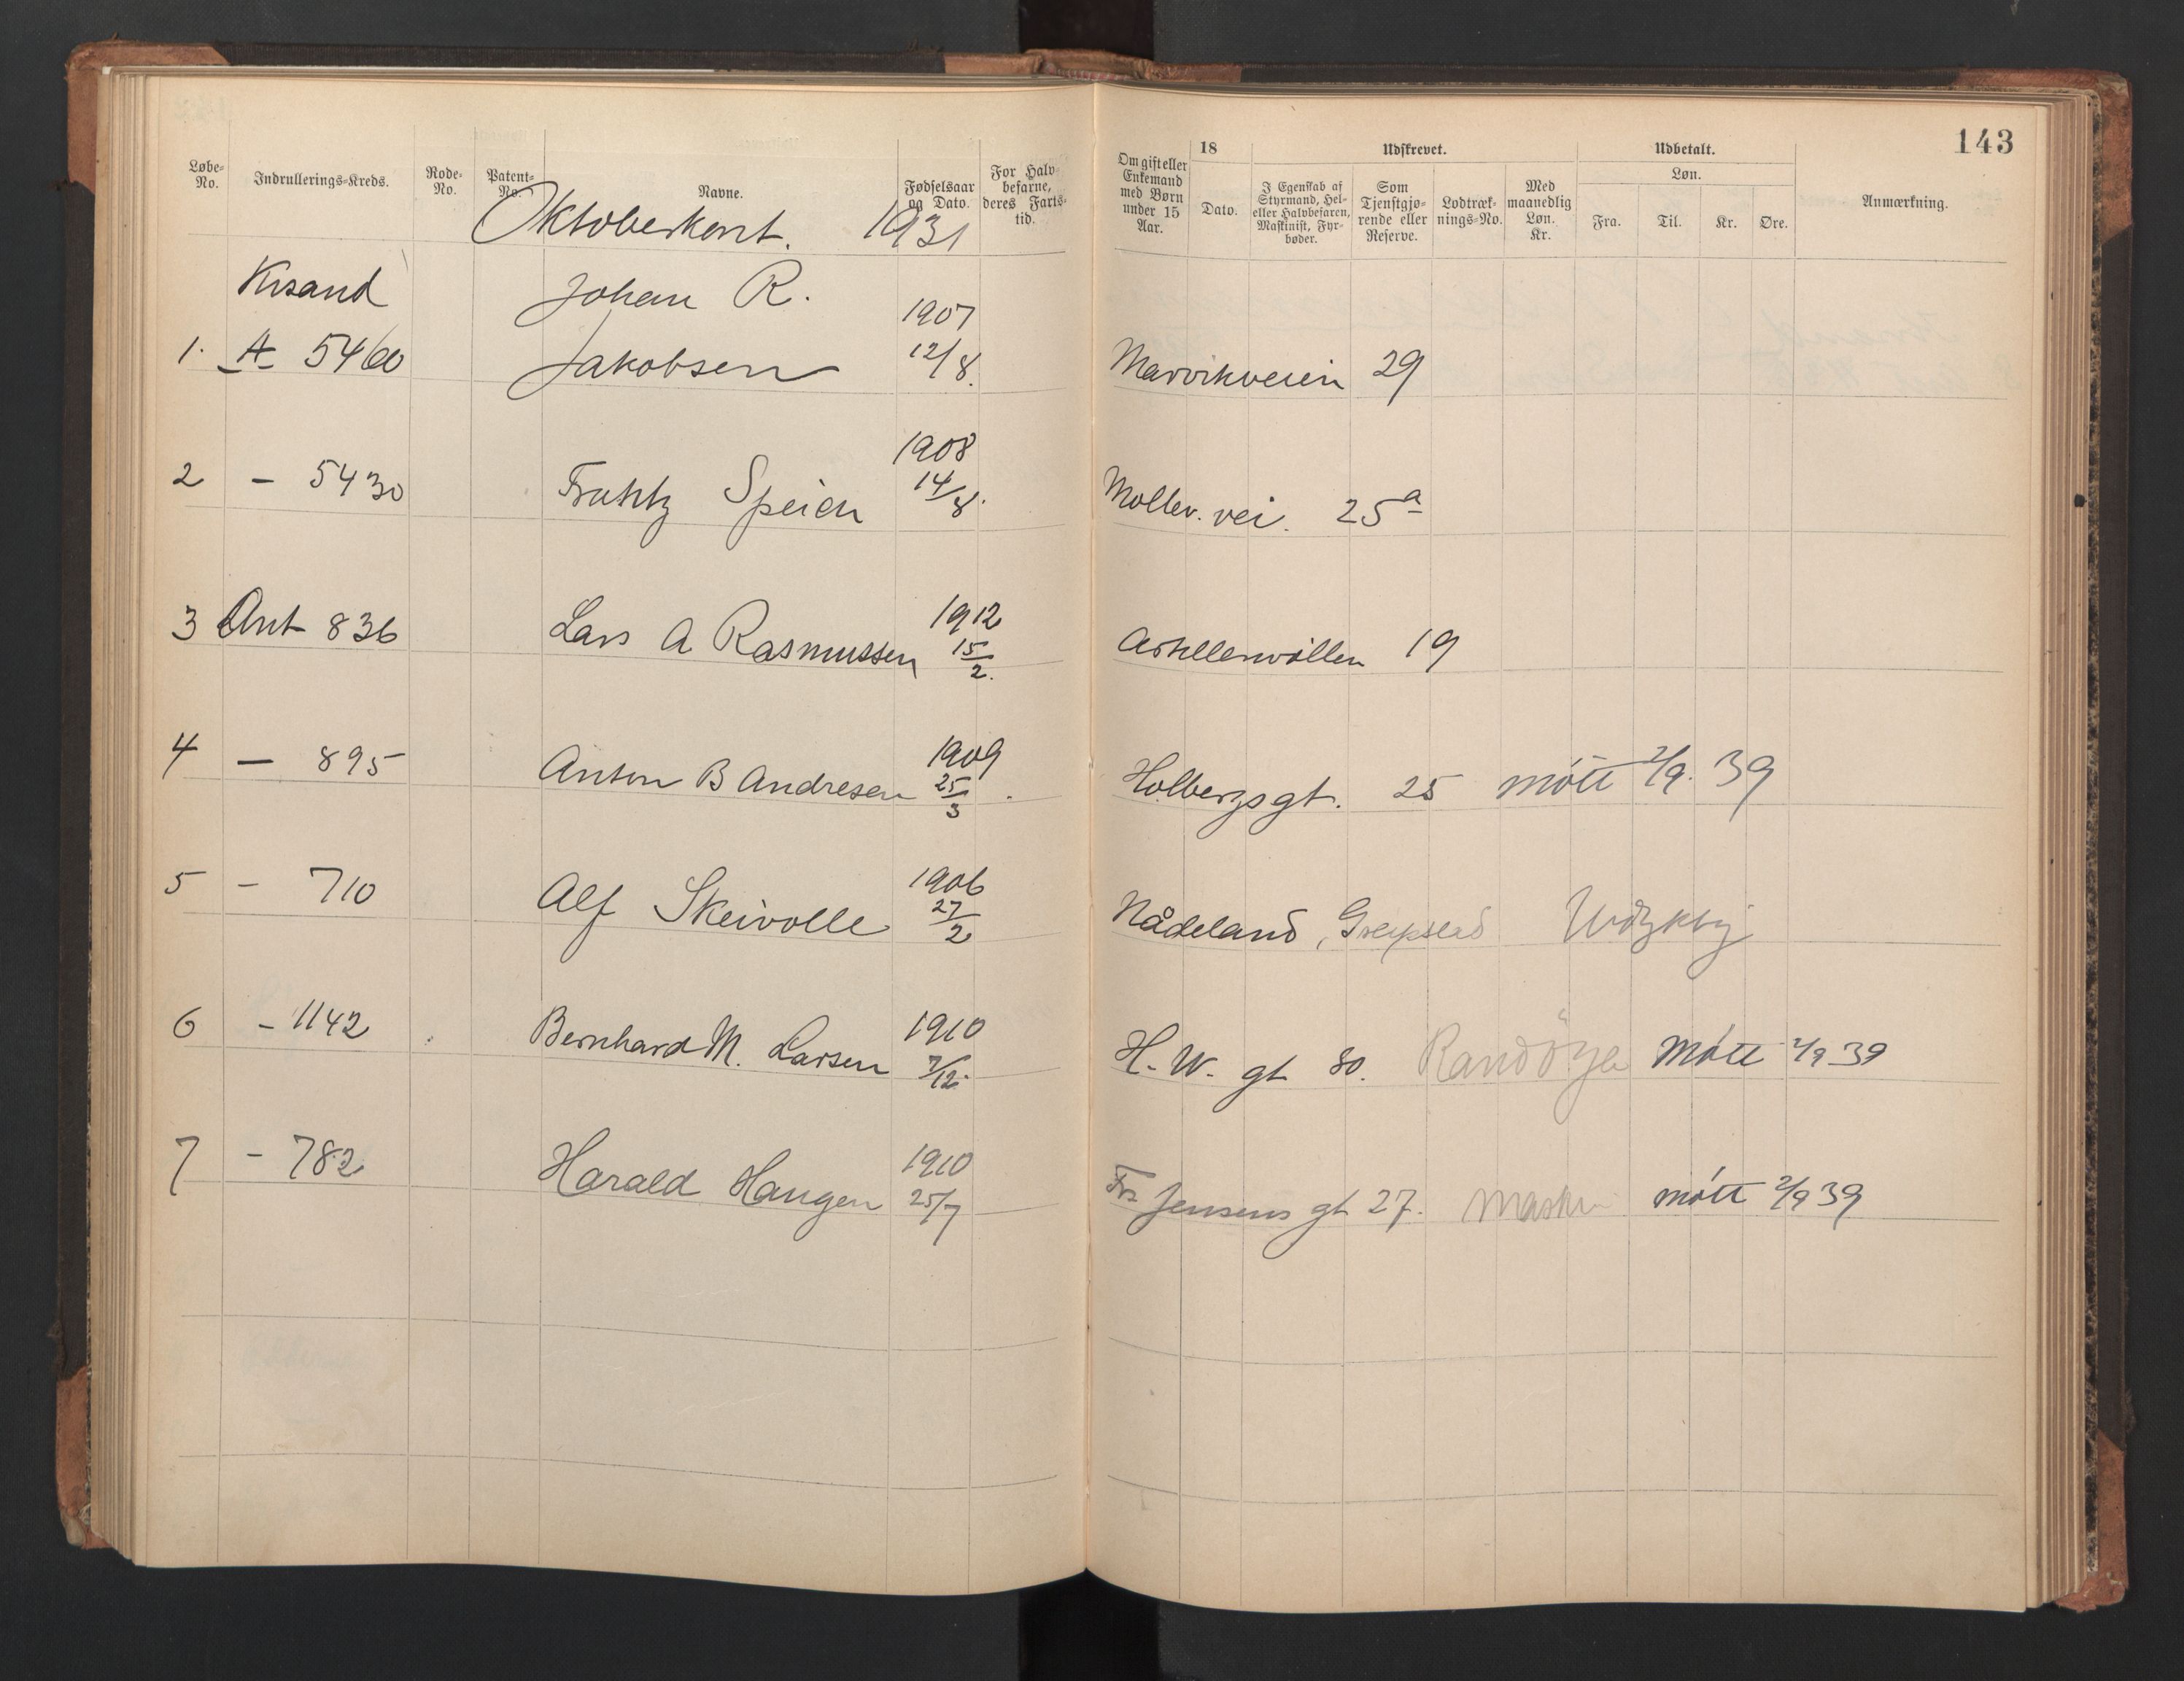 143
Løbe-No. Indrullerings-Kreds. Rode-No. Patent-No. Navne. Fødselsaar og Dato. For Halvbefarne, deres Fartstid. Om gift eller Enkemand med Børn under 15 Aar. 18 Dato. Udskrevet. I Egenskab af Styrmand, Hel- eller Halvbefaren, Maskinist, Fyrbøder. Som Tjenstgjørende eller Reserve. Lodtræknings-No. Med maanedlig Løn. Kr. Udbetalt. Løn. Fra. Til. Kr. Øre. Anmærkning.
Oktoberkont. 1931
Krsand Johan R. 1907
1. A 5460 Jakobsen 12/8. Marvikveien 29
1908
2 – 5430 Speier 14/8. Møllev. vei. 25a
3 Ant 836 Lars A Rasmussen 1912 15/2. Artillerivollen 19
4 – 895 Anton B Andresen 1909 25/3 Holbergsgt. 25 møtt 2/9. 39
5 – 710 Alf Skeivolle 1906 27/2 Nådeland, Greipstad
6 – 1142 Bernhard M. Larsen 1910 7/12. H. W. gt 80. Randøya Møtt 2/9 39
7 – 782 Harald Haugen 1910 25/7 Fr. Jensens gt 27. møtt 2/9 39